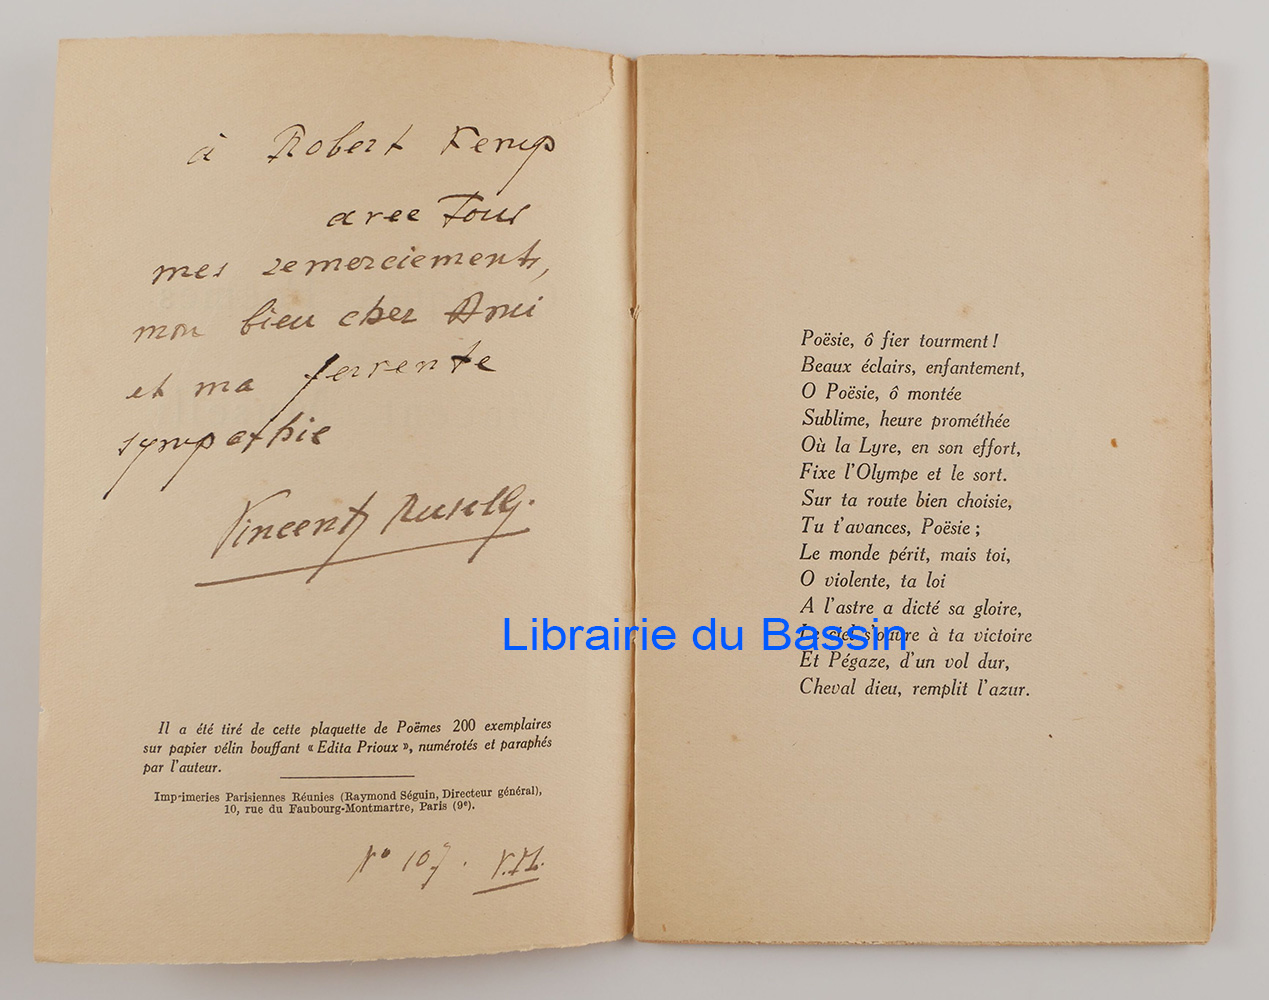 à Robert Kemp
avec tous
mes remerciements,
mon bien cher Ami
et ma fervente
sympathie
Vincent
Il a été tiré de cette plaquette de Poëmes 200 exemplaires
sur papier vélin bouffant « Edita Prioux », numérotés et paraphés
par l'auteur.
Imp-imeries Parisiennes Réunies (Raymond Séguin, Directeur général),
10, rue du Faubourg-Montmartre, Paris (9e).
N° 107.
Poësie, ô fier tourment !
Beaux éclairs, enfantement,
O Poësie, ô montée
Sublime, heure prométhée
Où la Lyre, en son effort,
Fixe l'Olympe et le sort.
Sur ta route bien choisie,
Tu t'avances, Poësie ;
Le monde périt, mais toi,
O violente, ta loi
A l'astre a dicté sa gloire,
Le ciel s'ouvre à ta victoire
Et Pégaze, d'un vol dur,
Cheval dieu, remplit l'azur.
Librairie du Bassin